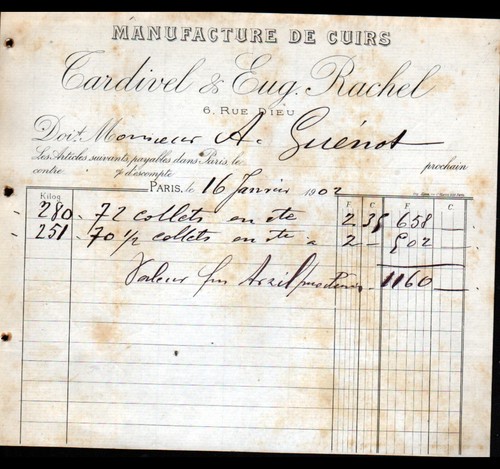 MANUFACTURE DE CUIRS
Tardivel & Eug. Rachel
6, RUE DIEU
Doit Monsieur A. Guénot
Les Articles suivants, payables dans Paris, le prochain
contre % d'escompte
PARIS, le 16 Janvier 1902
Kilog F. C. F. C.
280 - 72 collets en 2.35 658 -
251 - 70 1/2 collets en a 2 - 502 -
Valeur fin Avril prochain - 1160 -